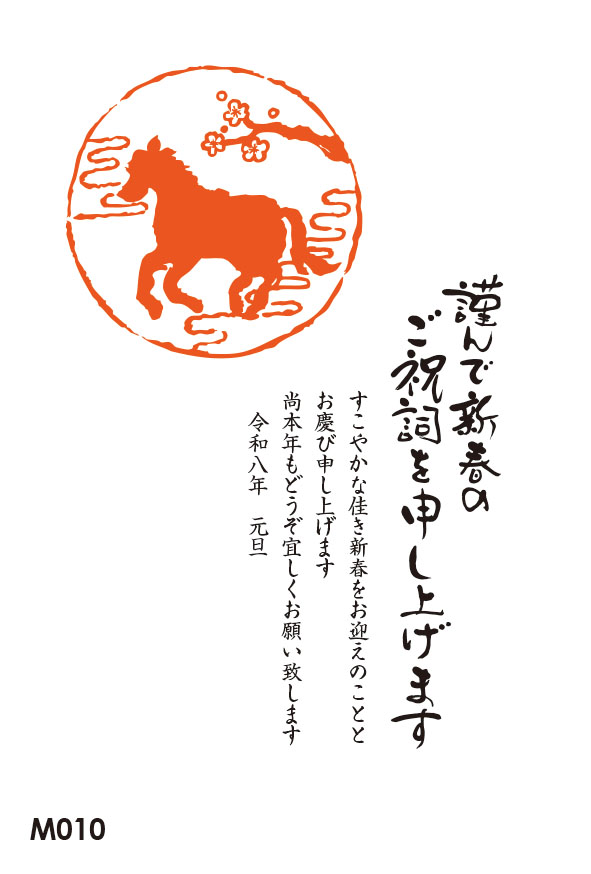 謹んで新春の
ご祝詞を申し上げます
すこやかな佳き新春をお迎えのことと
お慶び申し上げます
尚本年もどうぞ宜しくお願い致します
令和八年　元旦
M010